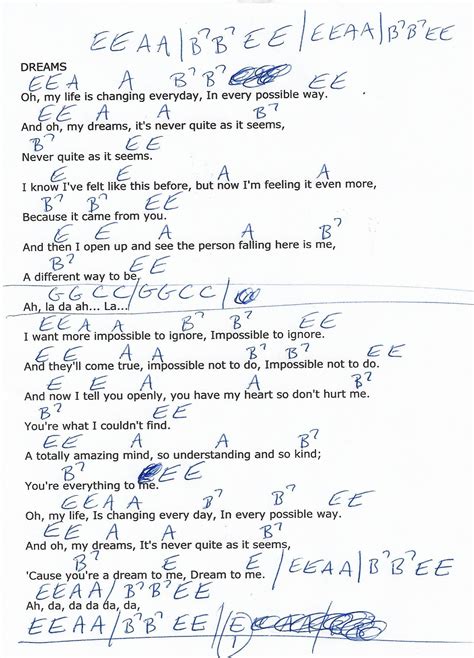 E E A A / B7 B7 E E / E E A A / B7 B7 E E
DREAMS
E E A A B7 B7 E E
Oh, my life is changing everyday, In every possible way.
E E A A B7
And oh, my dreams, it's never quite as it seems,
B7 E E
Never quite as it seems.
E E A A
I know I've felt like this before, but now I'm feeling it even more,
B7 B7 E E
Because it came from you.
E E A A B7
And then I open up and see the person falling here is me,
B7 E E
A different way to be.
G G C C / G G C C /
Ah, la da ah... La...
E E A A B7 B7 E E
I want more impossible to ignore, Impossible to ignore.
E E A A B7 B7 E E
And they'll come true, impossible not to do, Impossible not to do.
E E A A B7
And now I tell you openly, you have my heart so don't hurt me.
B7 E E
You're what I couldn't find.
E E A A B7
A totally amazing mind, so understanding and so kind;
B7 E E
You're everything to me.
E E A A B7 B7 E E
Oh, my life, Is changing every day, In every possible way.
E E A A B7
And oh, my dreams, It's never quite as it seems,
B7 E E / E E A A / B7 B7 E E
'Cause you're a dream to me, Dream to me.
E E A A / B7 B7 E E
Ah, da, da da da, da,
E E A A / B7 B7 E E // E